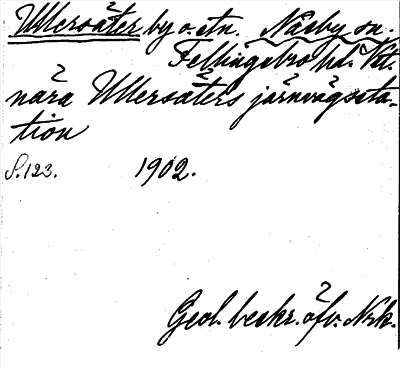 Ullersäter by o. stn. Näsby sn.
Fellingsbro hd. Vtl.
nära Ullersäters järnvägssta-
tion
S. 123. 1902.
Geol. beskr. öfv. Nrk.